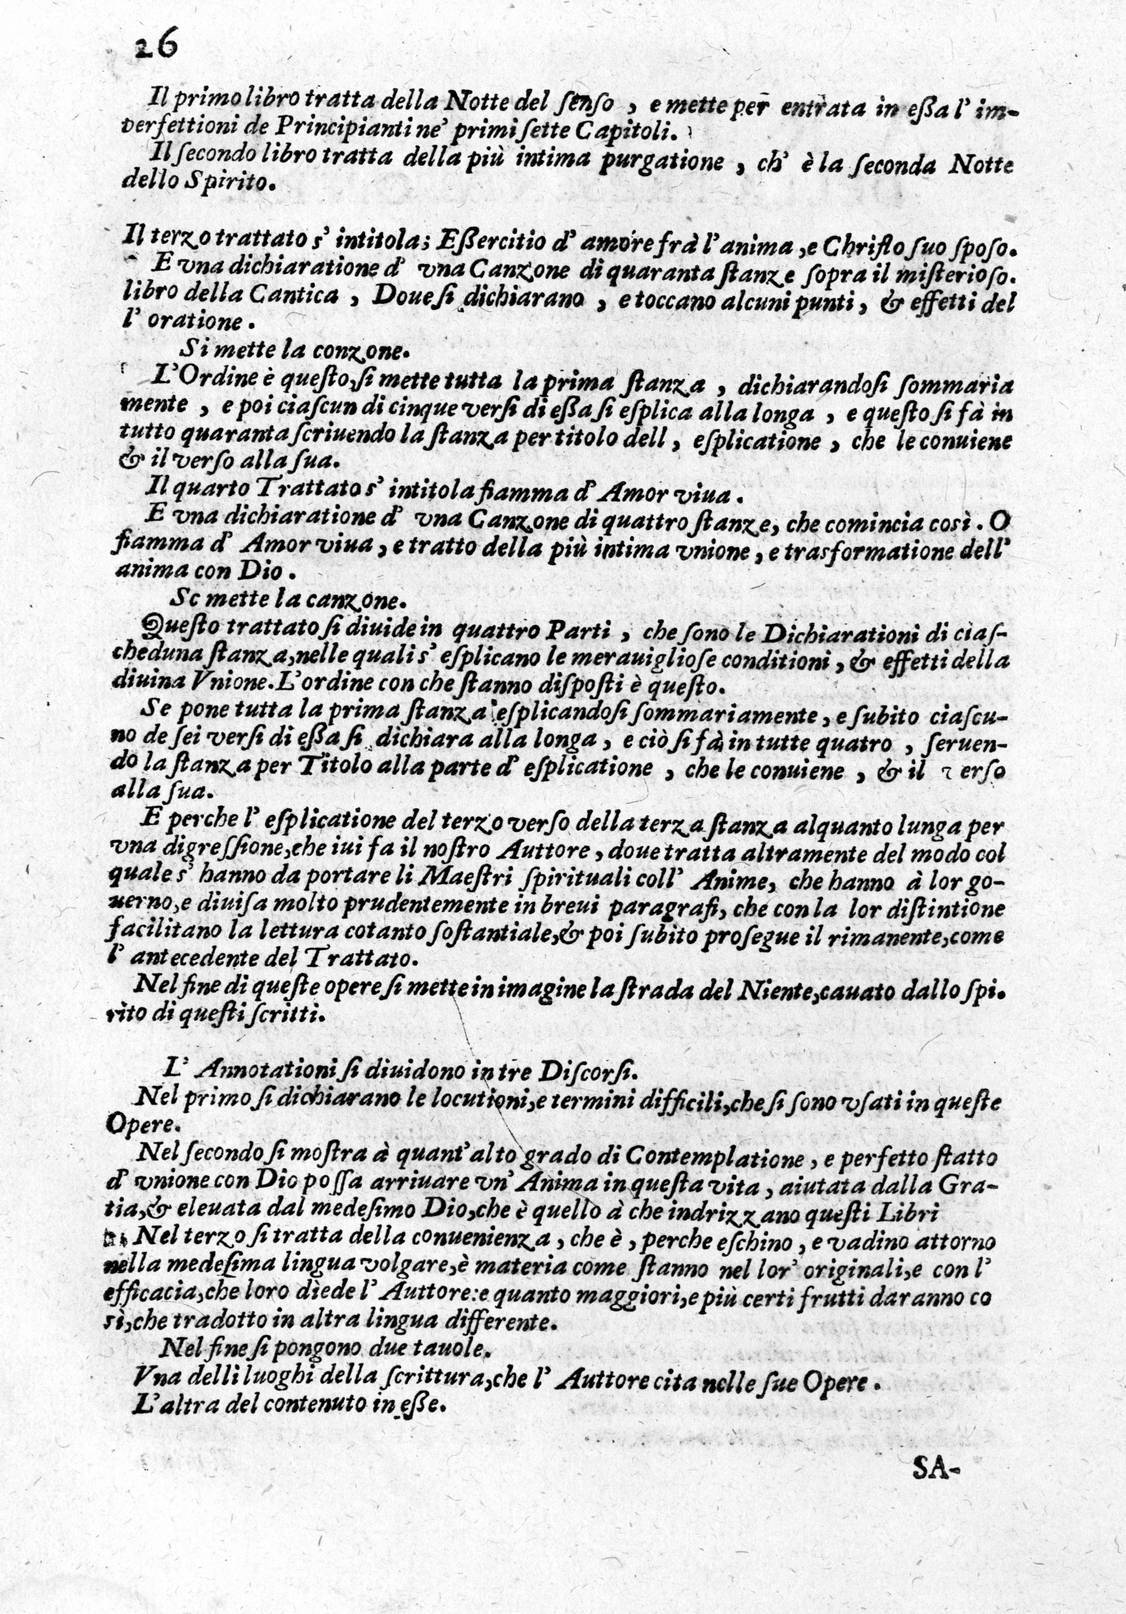 26
Il primo libro tratta della Notte del ſenſo, e mette per entrata in eßa l' im-
perfettioni de Principianti ne' primi ſette Capitoli.
Il ſecondo libro tratta della più intima purgatione, ch' è la ſeconda Notte
dello Spirito.
Il terzo trattato s' intitola; Eßercitio d' amore frà l' anima, e Chriſto ſuo ſpoſo.
E vna dichiaratione d' vna Canzone di quaranta ſtanze ſopra il miſterioſo.
libro della Cantica, Doue ſi dichiarano, e toccano alcuni punti, & effetti del
l' oratione.
Si mette la conzone.
L'Ordine è queſto, ſi mette tutta la prima ſtanza, dichiarandoſi ſommaria
mente, e poi ciaſcun di cinque verſi di eßa ſi eſplica alla longa, e queſto ſi fà in
tutto quaranta ſcriuendo la ſtanza per titolo dell, eſplicatione, che le conuiene
& il verſo alla ſua.
Il quarto Trattato s' intitola fiamma d' Amor viua.
E vna dichiaratione d' vna Canzone di quattro ſtanze, che comincia così. O
fiamma d' Amor viua, e tratto della più intima vnione, e trasformatione dell'
anima con Dio.
Sc mette la canzone.
Queſto trattato ſi diuide in quattro Parti, che ſono le Dichiarationi di ciaſ-
cheduna ſtanza, nelle quali s' eſplicano le merauiglioſe conditioni, & effetti della
diuina Vnione. L'ordine con che ſtanno diſpoſti è queſto.
Se pone tutta la prima ſtanza eſplicandoſi ſommariamente, e ſubito ciaſcu-
no de ſei verſi di eßa ſi dichiara alla longa, e ciò ſi fà in tutte quatro, ſeruen-
do la ſtanza per Titolo alla parte d' eſplicatione, che le conuiene, & il verſo
alla ſua.
E perche l' eſplicatione del terzo verſo della terza ſtanza alquanto lunga per
vna digreſſione, che iui fa il noſtro Auttore, doue tratta altramente del modo col
quale s' hanno da portare li Maeſtri ſpirituali coll' Anime, che hanno à lor go-
uerno, e diuiſa molto prudentemente in breui paragrafi, che con la lor diſtintione
facilitano la lettura cotanto ſoſtantiale, & poi ſubito proſegue il rimanente, come
l' antecedente del Trattato.
Nel fine di queſte opere ſi mette in imagine la ſtrada del Niente, cauato dallo ſpi.
rito di queſti ſcritti.
L' Annotationi ſi diuidono in tre Diſcorſi.
Nel primo ſi dichiarano le locutioni, e termini difficili, che ſi ſono vſati in queſte
Opere.
Nel ſecondo ſi moſtra à quant' alto grado di Contemplatione, e perfetto ſtatto
d' vnione con Dio poſſa arriuare vn' Anima in queſta vita, aiutata dalla Gra-
tia, & eleuata dal medeſimo Dio, che è quello à che indrizzano queſti Libri
Nel terzo ſi tratta della conuenienza, che è, perche eſchino, e vadino attorno
nella medeſima lingua volgare, è materia come ſtanno nel lor' originali, e con l'
efficacia, che loro dìede l' Auttore: e quanto maggiori, e più certi frutti daranno co
sì, che tradotto in altra lingua differente.
Nel fine ſi pongono due tauole.
Vna delli luoghi della ſcrittura, che l' Auttore cita nelle ſue Opere.
L'altra del contenuto in eße.
SA-